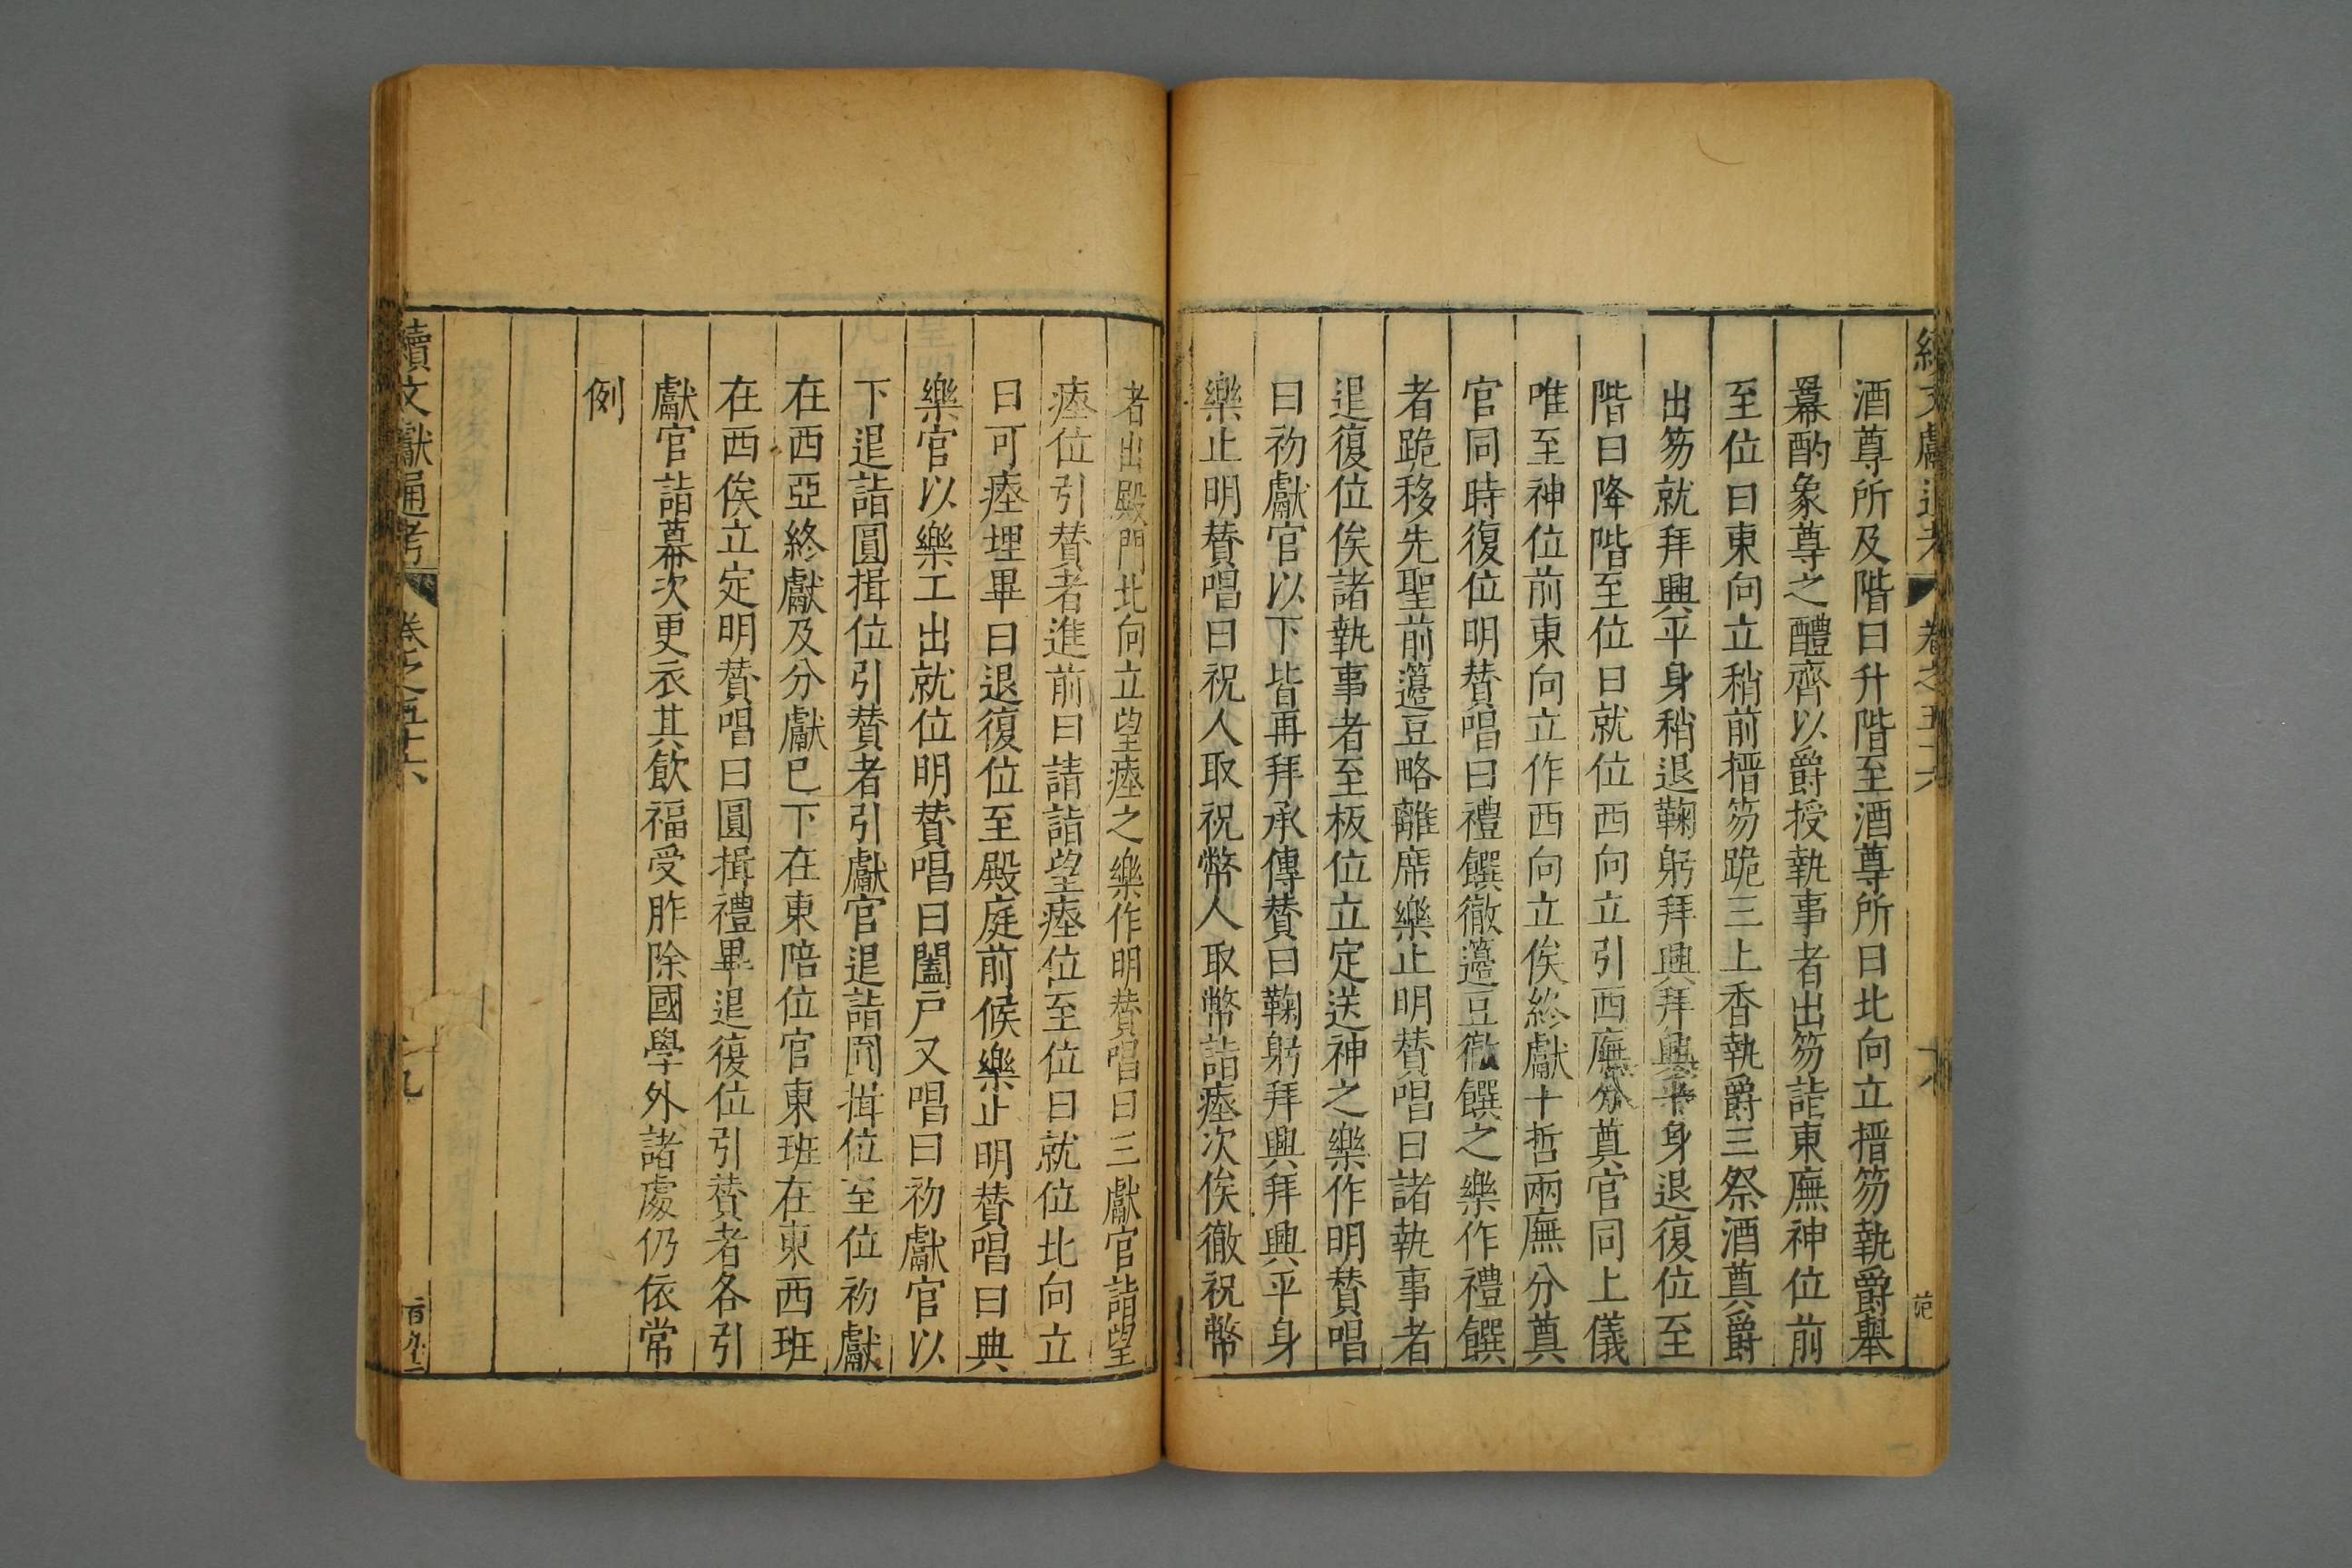 續文獻通考 卷之五十六 十八
酒尊所及階曰升階至酒尊所曰北向立搢笏執爵舉
冪酌象尊之醴齊以爵授執事者出笏詣東廡神位前
至位曰東向立稍前搢笏跪三上香執爵三祭酒奠爵
出笏就拜興平身稍退鞠躬拜興拜興平身退復位至
階曰降階至位曰就位西向立引西廡分奠官同上儀
唯至神位前東向立作西向立俟終獻十哲兩廡分奠
官同時復位明贊唱曰禮饌徹籩豆徹饌之樂作禮饌
者跪移先聖前籩豆略離席樂止明贊唱曰諸執事者
退復位俟諸執事者至板位立定送神之樂作明贊唱
曰初獻官以下皆再拜承傳贊曰鞠躬拜興拜興平身
樂止明贊唱曰祝人取祝幣人取幣詣瘞次俟徹祝幣
者出殿門北向立望瘞之樂作明贊唱曰三獻官詣望
瘞位引贊者進前曰請詣望瘞位至位曰就位北向立
曰可瘞埋畢曰退復位至殿庭前候樂止明贊唱曰典
樂官以樂工出就位明贊唱曰闔戶又唱曰初獻官以
下退詣圓揖位引贊者引獻官退詣圓揖位至位初獻
在西亞終獻及分獻已下在東陪位官東班在東西班
在西俟立定明贊唱曰圓揖禮畢退復位引贊者各引
獻官詣幕次更衣其飲福受胙除國學外諸處仍依常
例
續文獻通考 卷之五十六 十九